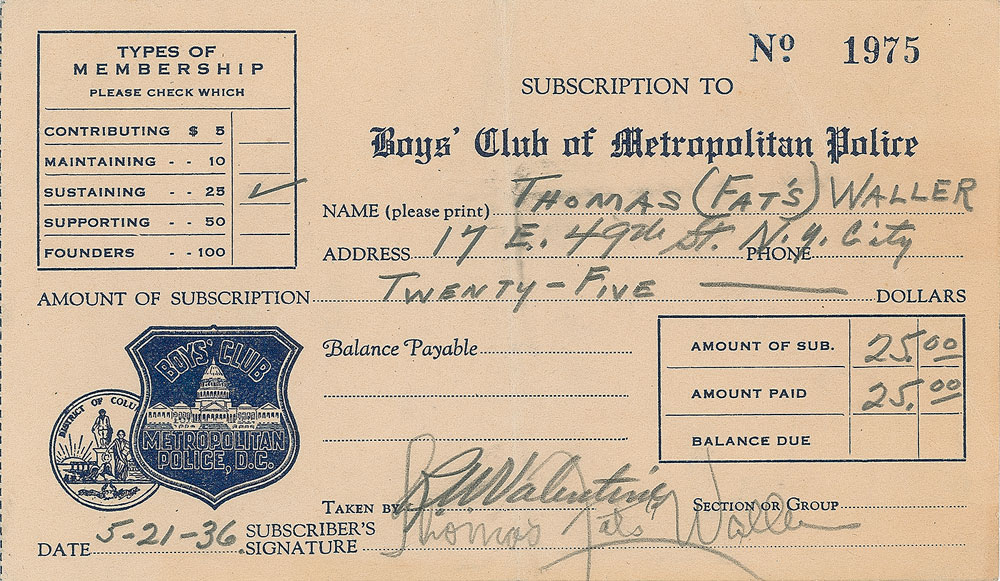 Nº 1975
TYPES OF
MEMBERSHIP
PLEASE CHECK WHICH
CONTRIBUTING $ 5
MAINTAINING - - 10
SUSTAINING - - 25 ✓
SUPPORTING - - 50
FOUNDERS - - 100
SUBSCRIPTION TO
Boys' Club of Metropolitan Police
NAME (please print) THOMAS (FAT'S) WALLER
ADDRESS 17 E. 49th St. N.Y. City PHONE
AMOUNT OF SUBSCRIPTION TWENTY-FIVE DOLLARS
Balance Payable
AMOUNT OF SUB. 25.00
AMOUNT PAID 25.00
BALANCE DUE
DISTRICT OF COLU
BOYS' CLUB
METROPOLITAN
POLICE, D.C.
TAKEN BY R. W. Valentine SECTION OR GROUP
DATE 5-21-36 SUBSCRIBER'S SIGNATURE Thomas Fats Waller